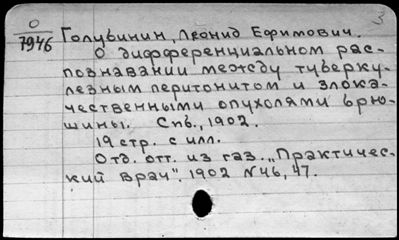 3
О
7946
Голубинин, Леонид Ефимович.
О дифференциальном рас-
познавании между туберку-
лезным перитонитом и злока-
чественными опухолями брю-
шины. Спб., 1902.
19 стр. с илл.
Отд. отт. из газ. „Практичес-
кий врач". 1902 N46, 47.